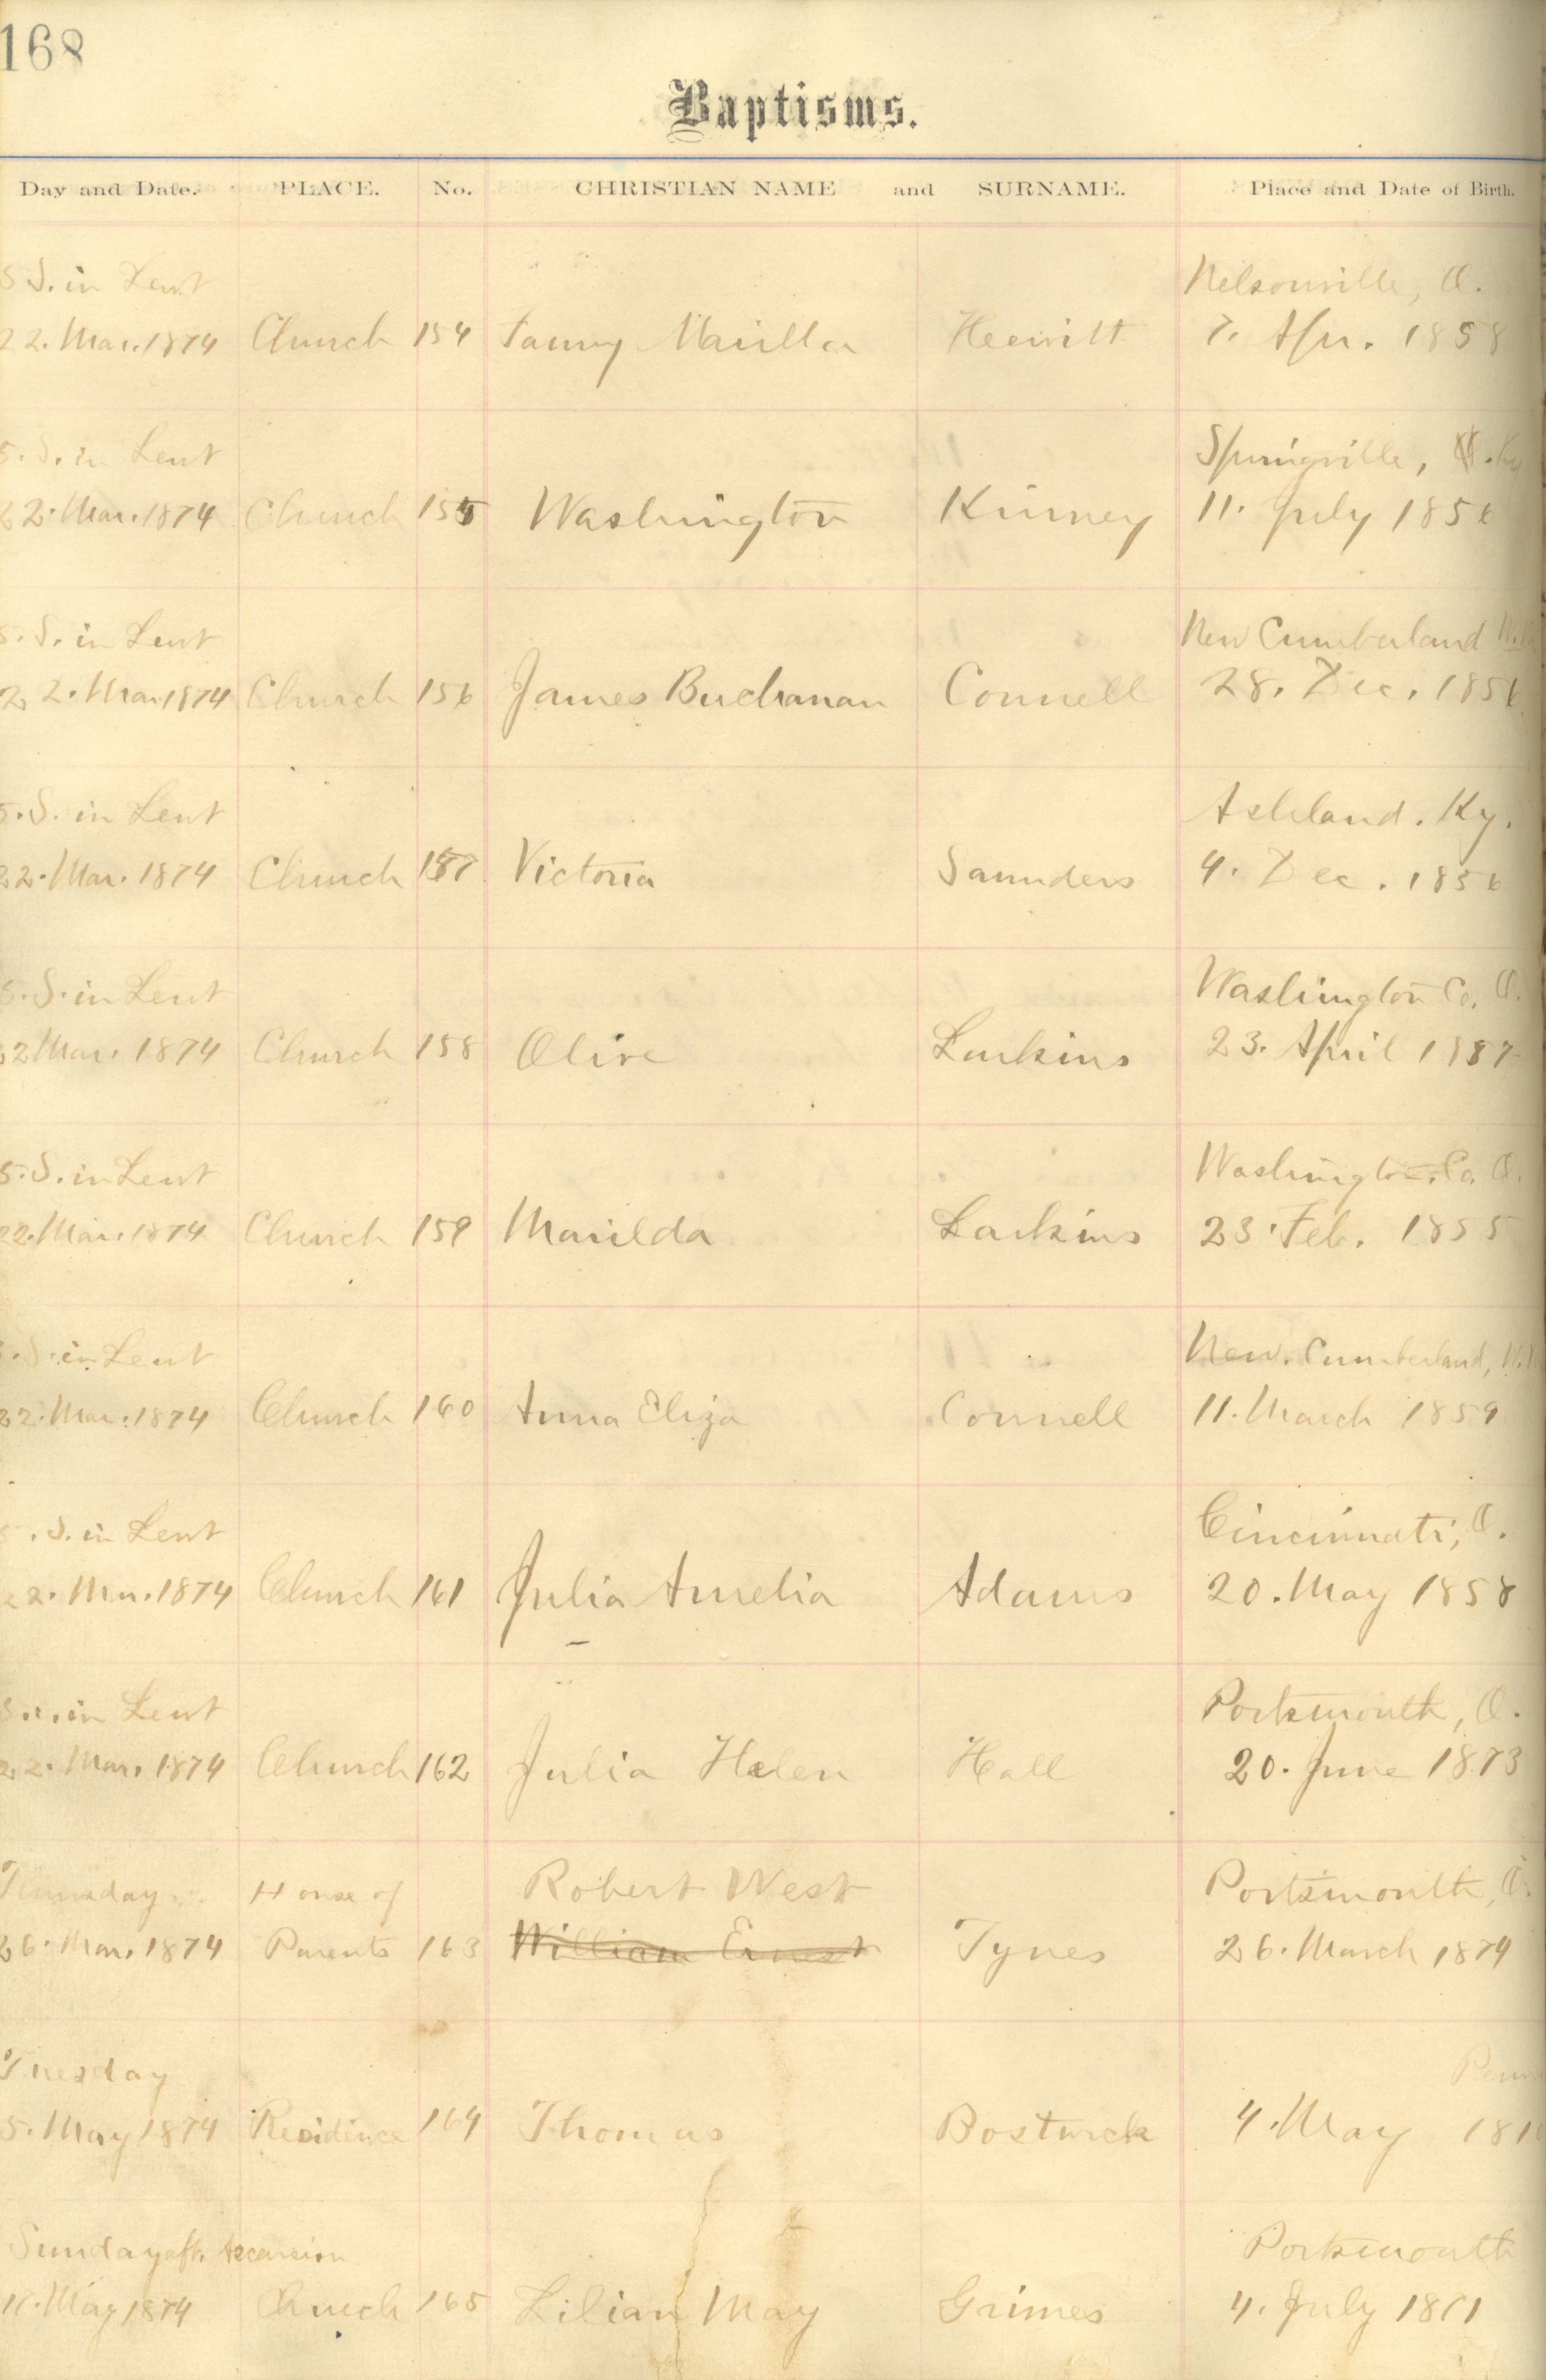 168
Baptisms.
Day and Date. PLACE. No. CHRISTIAN NAME and SURNAME. Place and Date of Birth.
5 S. in Lent Nelsonville, O.
22. Mar. 1874 Church 154 Fanny Marilla Hewitt 7. Apr. 1858
5. S. in Lent Springville, Ky
22. Mar. 1874 Church 155 Washington Kinney 11. July 1856
5. S. in Lent New Cumberland W.
22. Mar. 1874 Church 156 James Buchanan Connell 28. Dec. 1856
5. S. in Lent Ashland. Ky.
22. Mar. 1874 Church 157 Victoria Saunders 4. Dec. 1856
5. S. in Lent Washington Co. O.
22 Mar. 1874 Church 158 Olive Larkins 23. April 1857
5. S. in Lent Washington Co. O.
22. Mar. 1874 Church 159 Marilda Larkins 23. Feb. 1855
S. in Lent New. Cumberland, W.
22. Mar. 1874 Church 160 Anna Eliza Connell 11. March 1859
5. S. in Lent Cincinnati, O.
22. Mar. 1874 Church 161 Julia Amelia Adams 20. May 1858
5. S. in Lent Portsmouth, O.
22. Mar. 1874 Church 162 Julia Helen Hall 20. June 1873
Thursday House of Robert West Portsmouth, O.
26. Mar. 1874 Parents 163 William Ernest Tynes 26. March 1874
Tuesday Penn
5. May 1874 Residence 164 Thomas Bostwick 4. May
Sunday aft. Ascension Portsmouth
17. May 1874 Church 165 Lilian May Grimes 4. July 1871